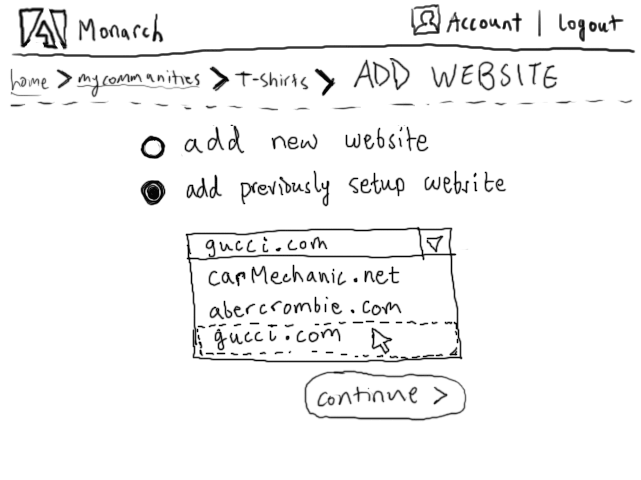 Monarch Account | Logout
home > mycommanities > T-shirts > ADD WEBSITE
add new website
add previously setup website
gucci.com
carMechanic.net
abercrombie.com
gucci.com
continue >